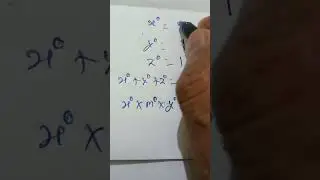 x⁰ =
y⁰ =
z⁰ = 1
x⁰ + y⁰ + z⁰ =
x⁰ × m⁰ × y⁰
x⁰ ×